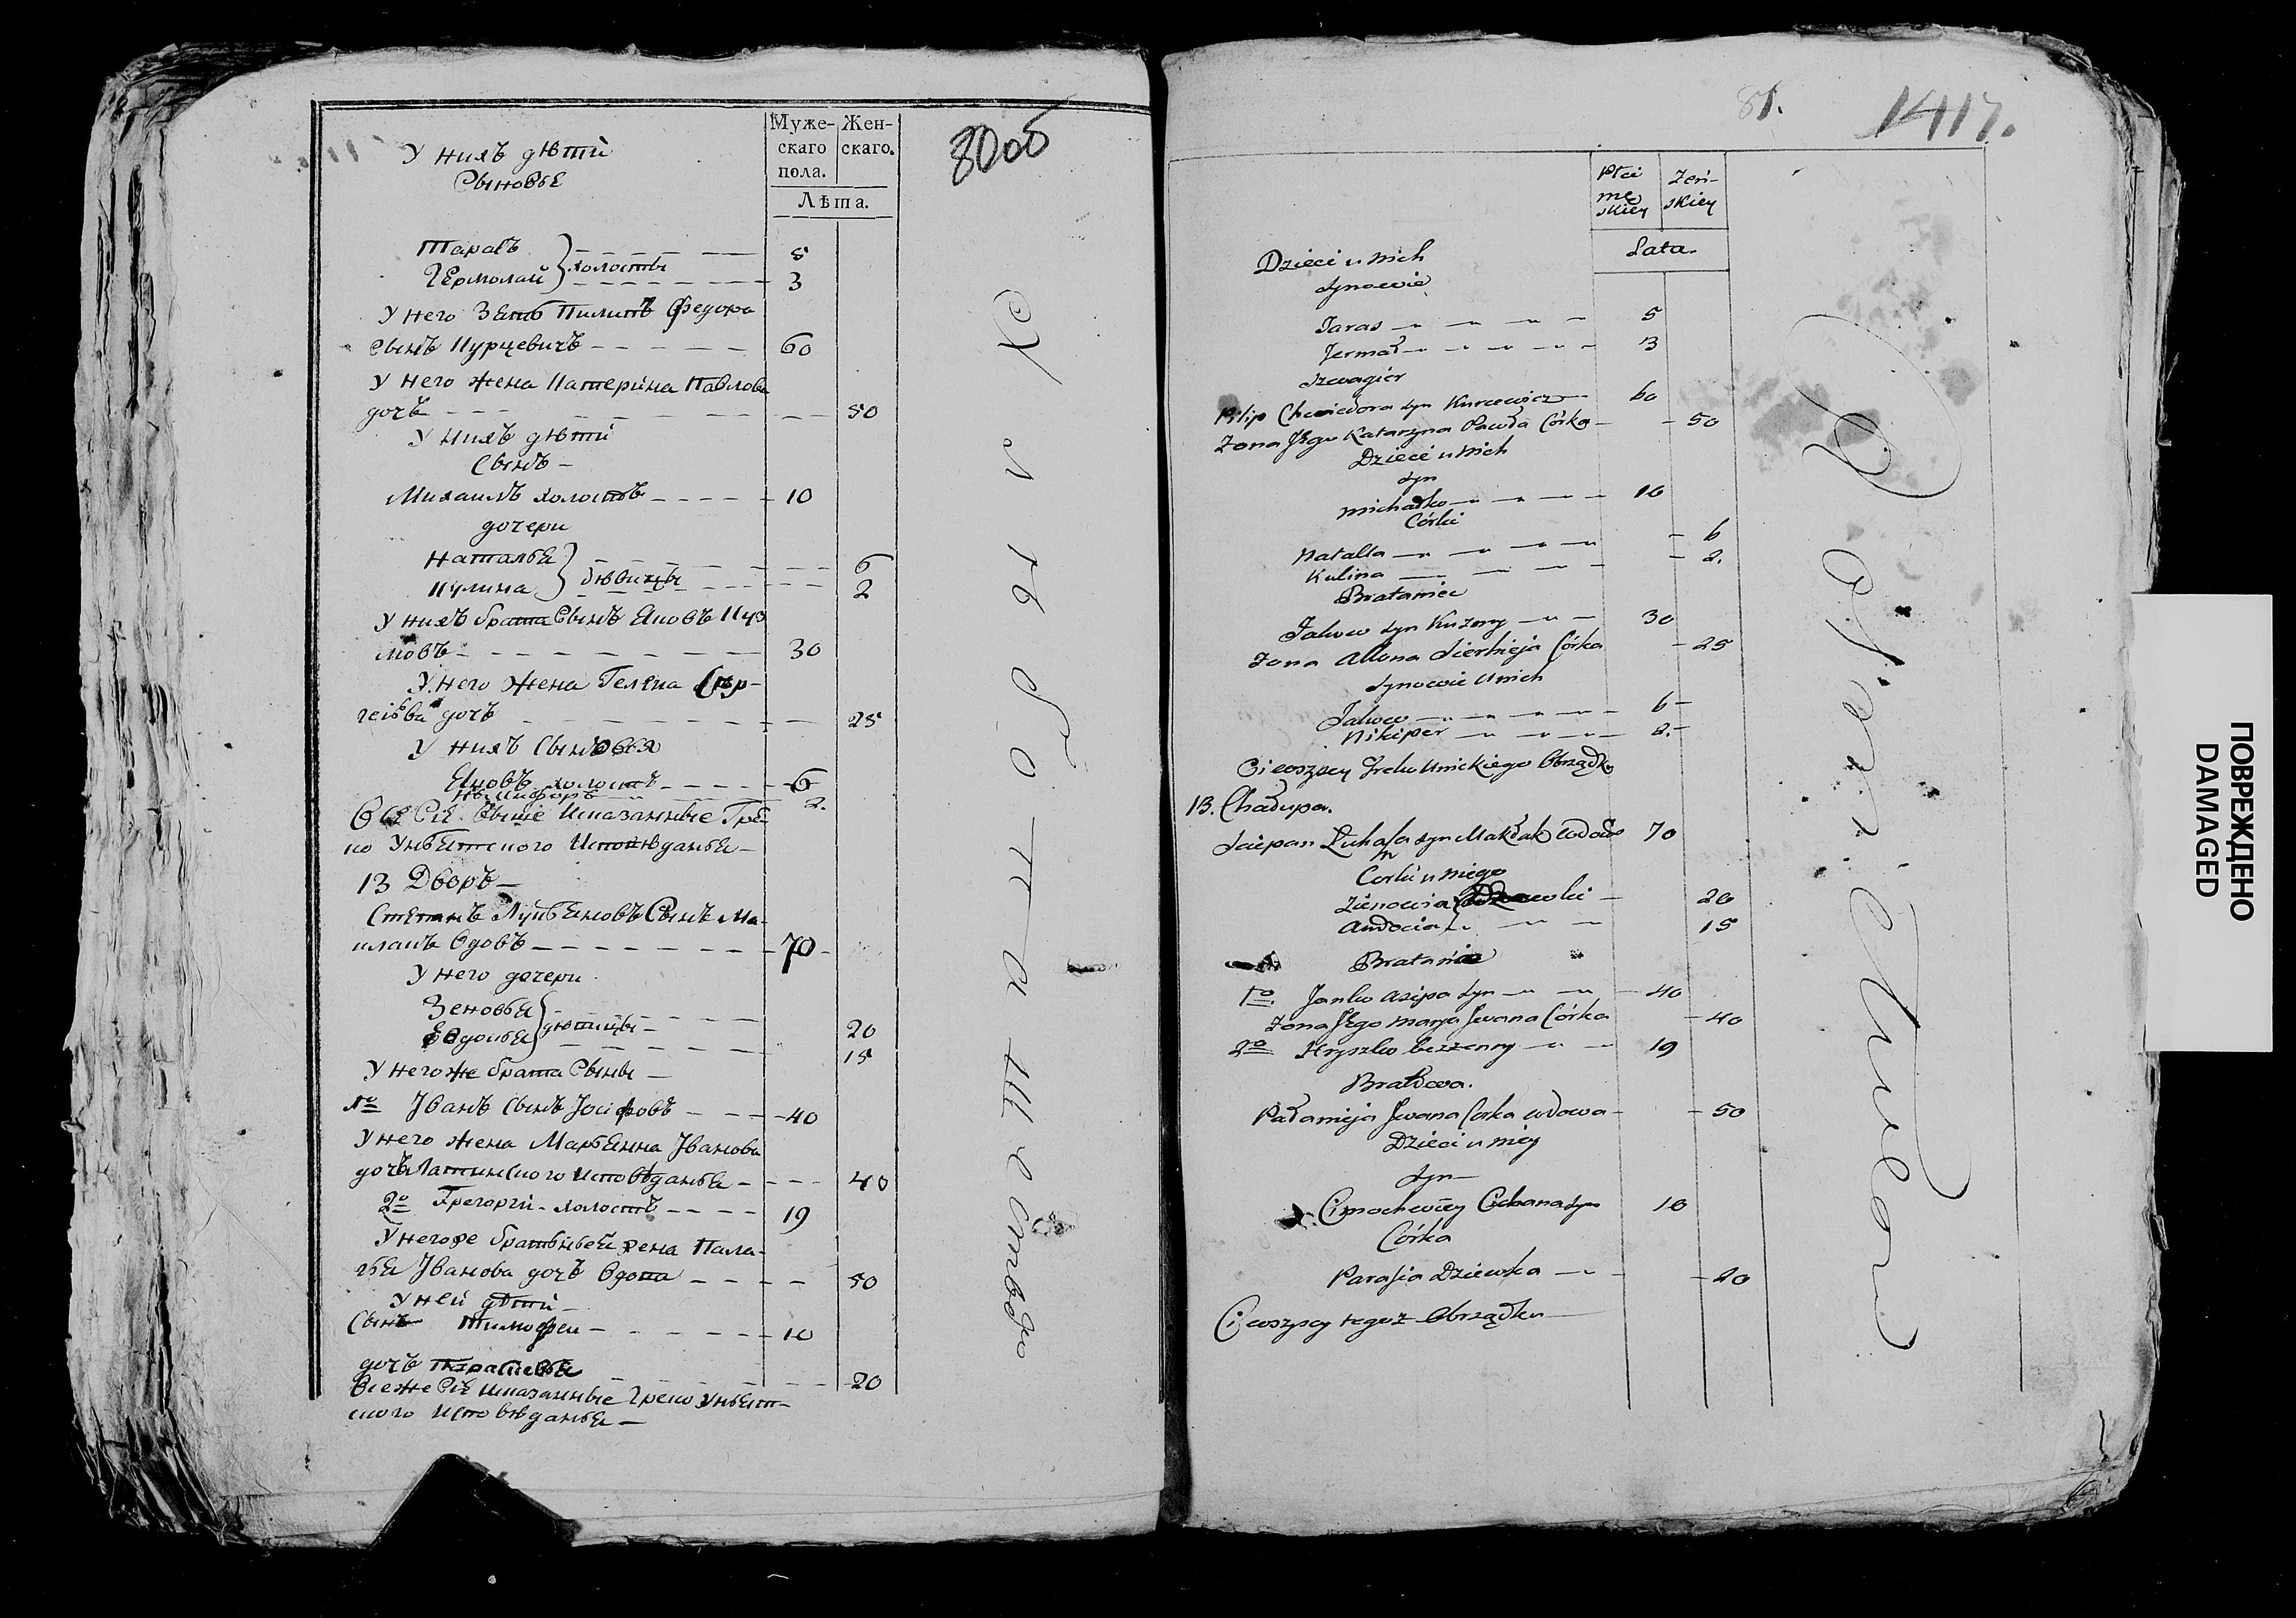 У нихъ дѣти
Сыновье
Муже- Жен-
скаго скаго.
пола.
Лѣта.
80об
Тарасъ 5
Ермолай } холосты 3
У него Зять Пилипъ Федора
Сынъ Курцевичъ 60
У него жена Катерина Павлова
дочъ 50
У нихъ дѣти
Сынъ
Михаилъ холостъ 10
дочери
Наталья 6
Кулина } дѣвицы 2
У нихъ брата Сынъ Яковъ Куз
мовъ 30
У него жена Гелена Сер-
геѣва дочъ 25
У нихъ Сыновья
Яковъ холостъ 6
Никифоръ 2.
Всѣ Сiе выше Показанные Гре-
ко Унѣятского Исповѣданья
13 Дворъ
Степанъ Лукьяновъ Сынъ Ма-
клакъ Вдовъ 70
У него дочери
Зеновья 20
Евдокья } дѣвицы 15
У него же брата Сыны
1º Iванъ Сынъ Iосифовъ 40
У него жена Марьянна Iванова
дочъ Латинского Исповѣданья 40
2º Грегорiй холостъ 19
У него же братнѣея жена Пала-
гья Iванова дочъ Вдова 50
У ней дѣти
Сынъ Тимофей 10
дочъ Парасевья 20
Все же Сiе Показанные Греко Унѣят-
ского Исповѣданья
81. 1417.
Płci Żeń-
mę skiey
skiey
Lata.
Dzieci u nich
Synowie
Taras 5
Jermoł 3
Szwagier
Pilip Chwiedora syn Kurcewicz 60
Żona Jego Katarzyna Pawła Córka 50
Dzieci u nich
Syn
Michałko 10
Córki
Natalla 6
Kulina 2.
Brataniec
Jakow syn Kuzmy 30
Żona Allona Sierhieja Córka 25
Synowie u nich
Jakow 6
Nikiper 2.
Ci wszyscy Greko Unickiego Obrządku
13. Chałupa.
Sciepan Łukasza syn Makłak wdowiec 70
Corki u niego
Zienowia 20
Audocia 15
Bratanie
1º Janko Asipa syn 40
Żona Jego Marya Jwana Córka 40
2º Hryszko bezżenny 19
Bratowa.
Pałanieja Jwana Corka wdowa 50
Dzieci u niey
Syn
10
Córka
Parasia Dziewka 20
Ci wszyscy tegoż Obrządku
ПОВРЕЖДЕНО
DAMAGED